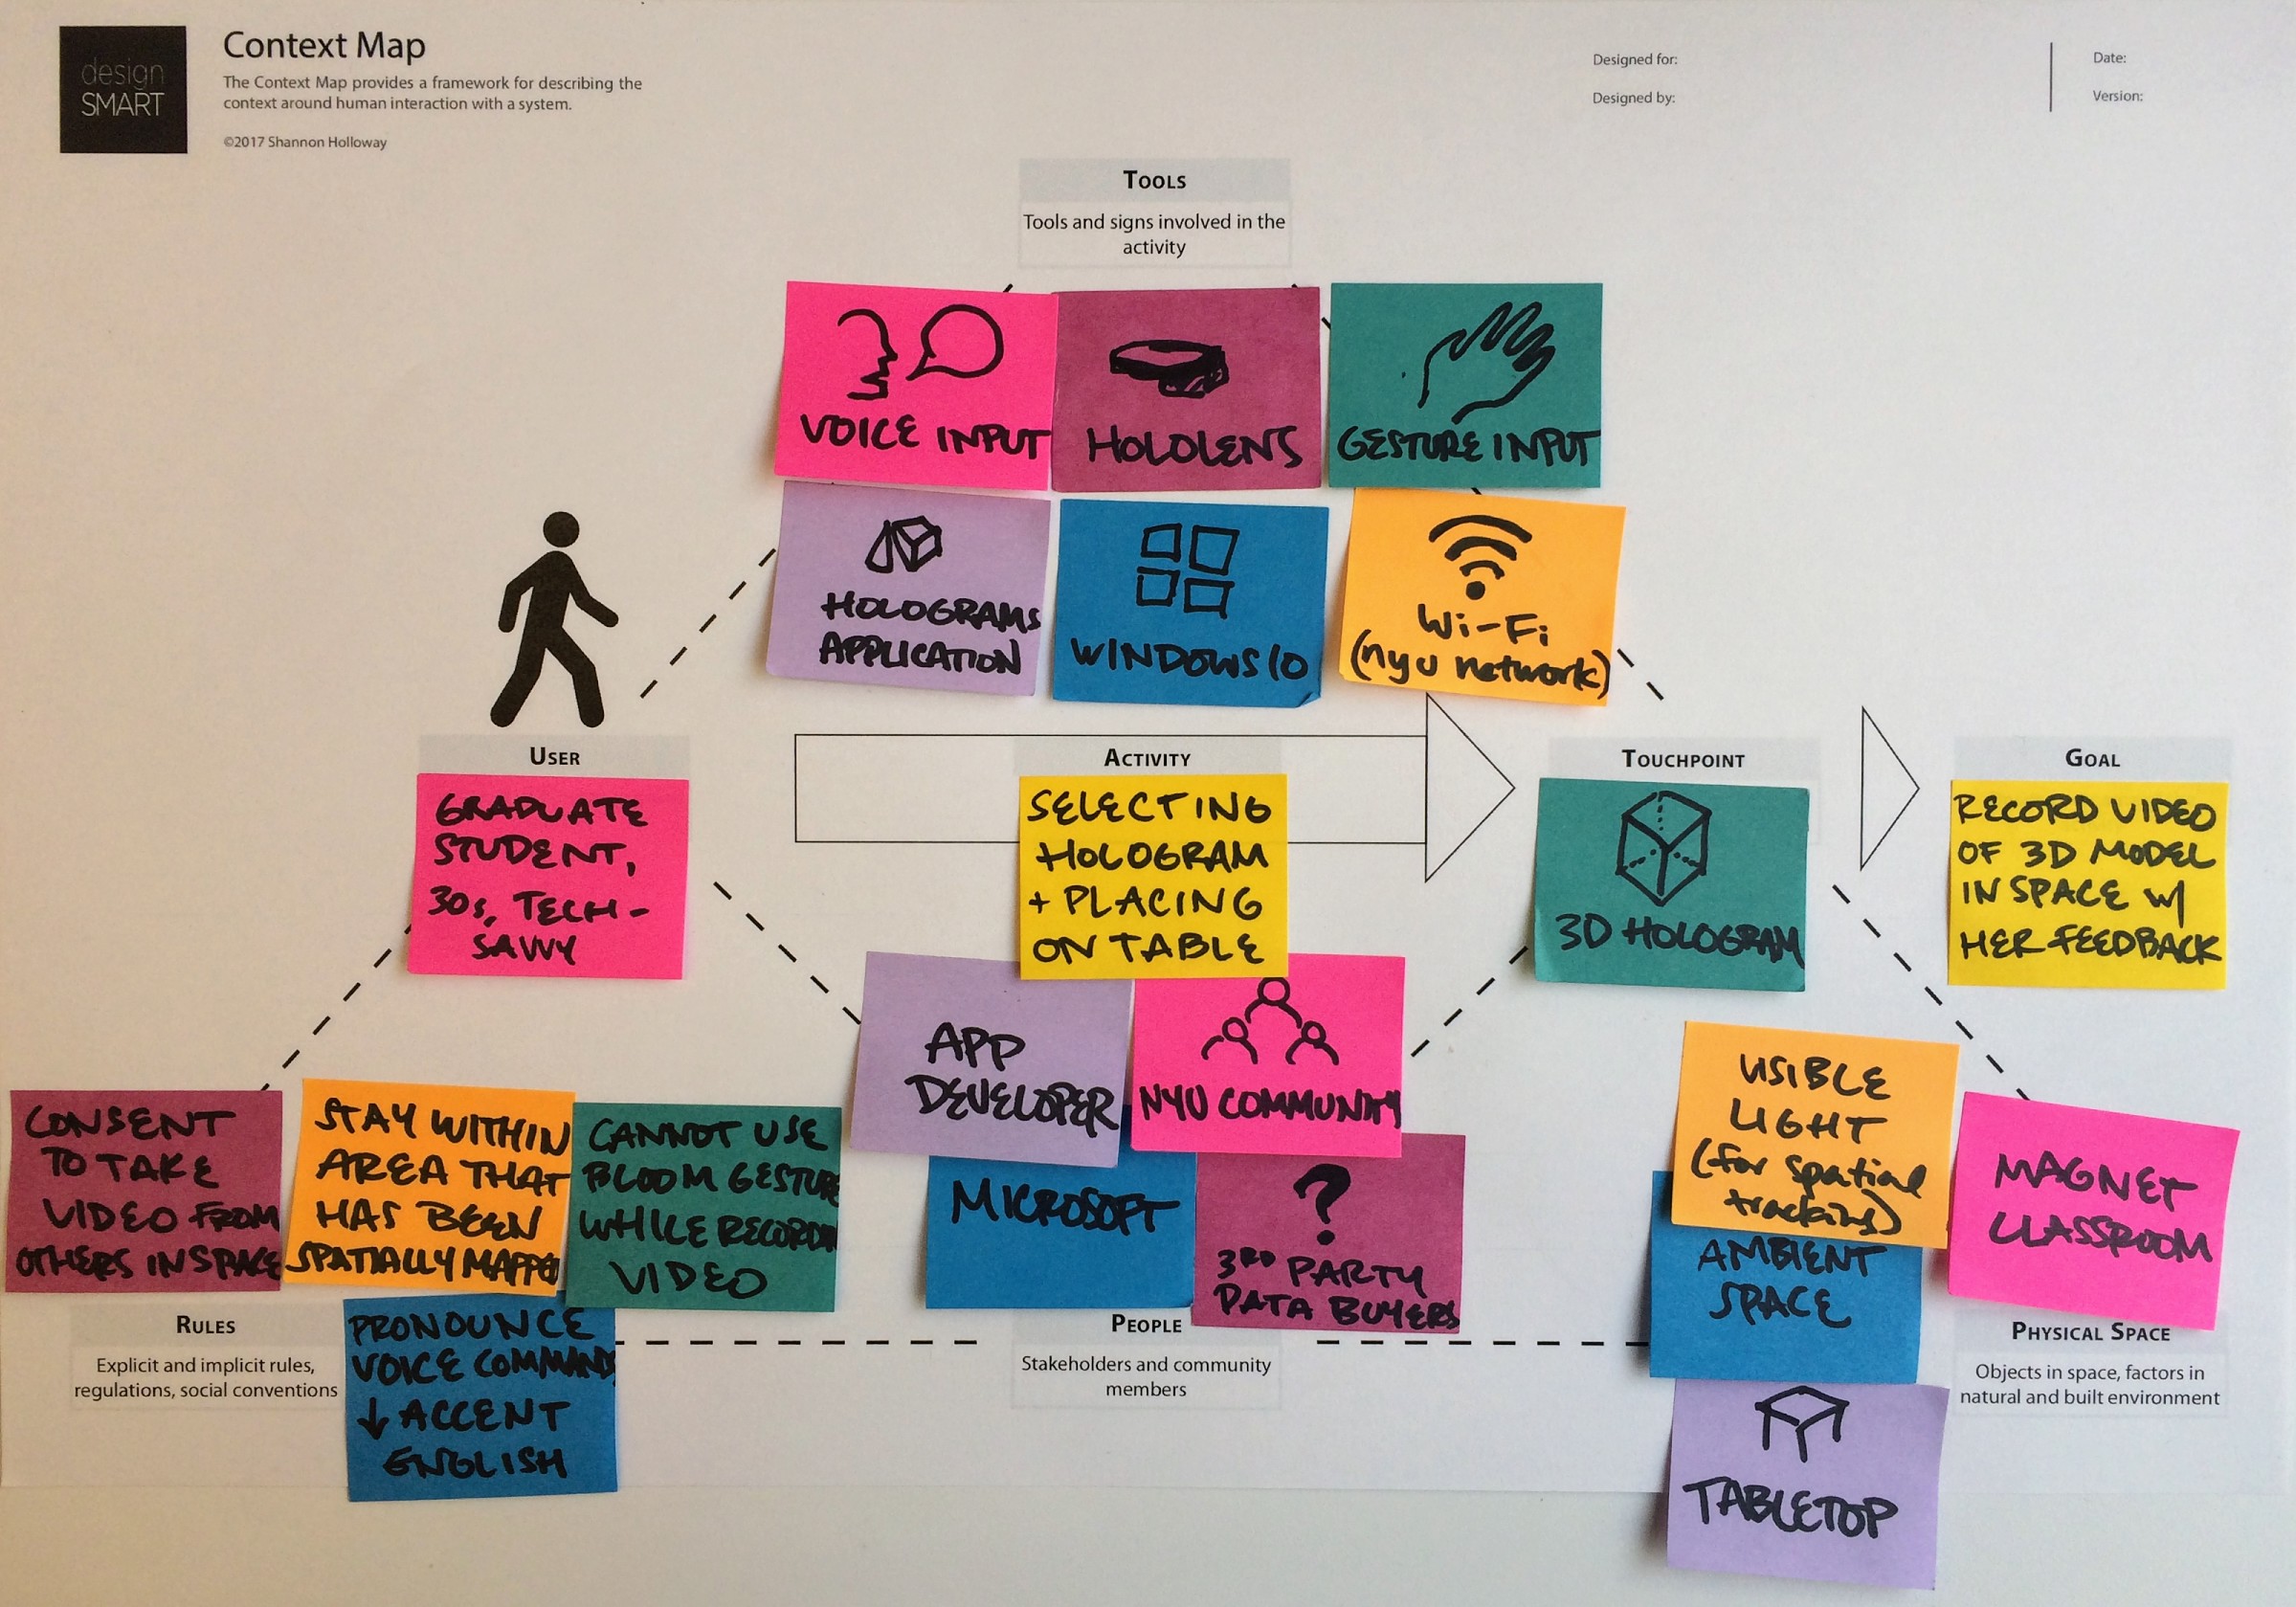 design
SMART
Context Map
The Context Map provides a framework for describing the
context around human interaction with a system.
©2017 Shannon Holloway
Designed for:
Designed by:
Date:
Version:
TOOLS
Tools and signs involved in the
activity
VOICE INPUT
HOLOLENS
GESTURE INPUT
HOLOGRAMS
APPLICATION
WINDOWS 10
Wi-Fi
(nyu network)
USER
GRADUATE
STUDENT,
30s, TECH-
SAVVY
ACTIVITY
SELECTING
HOLOGRAM
+ PLACING
ON TABLE
TOUCHPOINT
3D HOLOGRAM
GOAL
RECORD VIDEO
OF 3D MODEL
IN SPACE w/
HER FEEDBACK
CONSENT
TO TAKE
VIDEO FROM
OTHERS IN SPACE
STAY WITHIN
AREA THAT
HAS BEEN
SPATIALLY MAPPED
CANNOT USE
BLOOM GESTURE
WHILE RECORDING
VIDEO
PRONOUNCE
VOICE COMMANDS
↓ ACCENT
ENGLISH
RULES
Explicit and implicit rules,
regulations, social conventions
APP
DEVELOPER
NYU COMMUNITY
MICROSOFT
?
3RD PARTY
DATA BUYERS
PEOPLE
Stakeholders and community
members
VISIBLE
LIGHT
(for spatial
tracking)
AMBIENT
SPACE
MAGNET
CLASSROOM
TABLETOP
PHYSICAL SPACE
Objects in space, factors in
natural and built environment